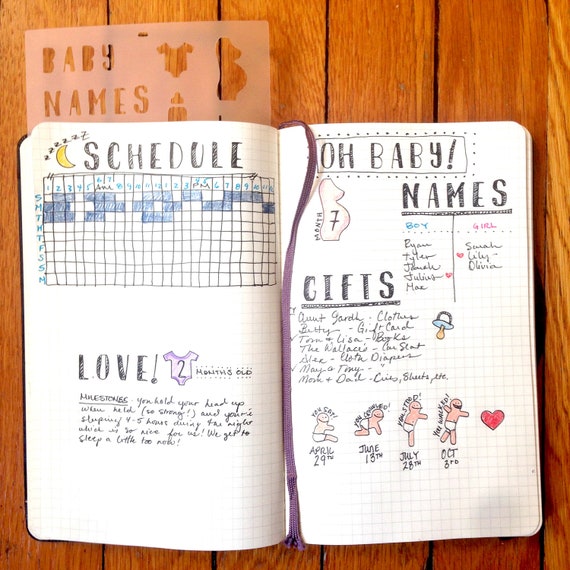 BABY
NAMES
zzzzzZ
SCHEDULE
1 2 3 4 5 6 7 8 9 10 11 12 1 2 3 4 5 6 7 8 9 10 11 12
Am Pm
S
M
T
W
T
F
S
S
M
LOVE! 2 MONTHS OLD
MILESTONES: you hold your head up
when held (so strong!) and you're
sleeping 4-5 hours during the night
which is so nice for us! We get to
sleep a little too now!
OH BABY!
MONTH 7
NAMES
BOY GIRL
Ryan Sarah
Tyler Lily
Jonah Olivia
Julius
Max
GIFTS
Aunt Gardh - Clothes
Betty - Gift Card
Tom & Lisa - Books
The Wallace's - Car Seat
Alex - Cloth Diapers
May & Tony - "
Mom & Dad - Crib, Sheets, etc.
YOU SAT!
APRIL
29TH
YOU CRAWLED!
JUNE
13TH
YOU STOOD!
JULY
28TH
YOU WALKED!
OCT
3RD